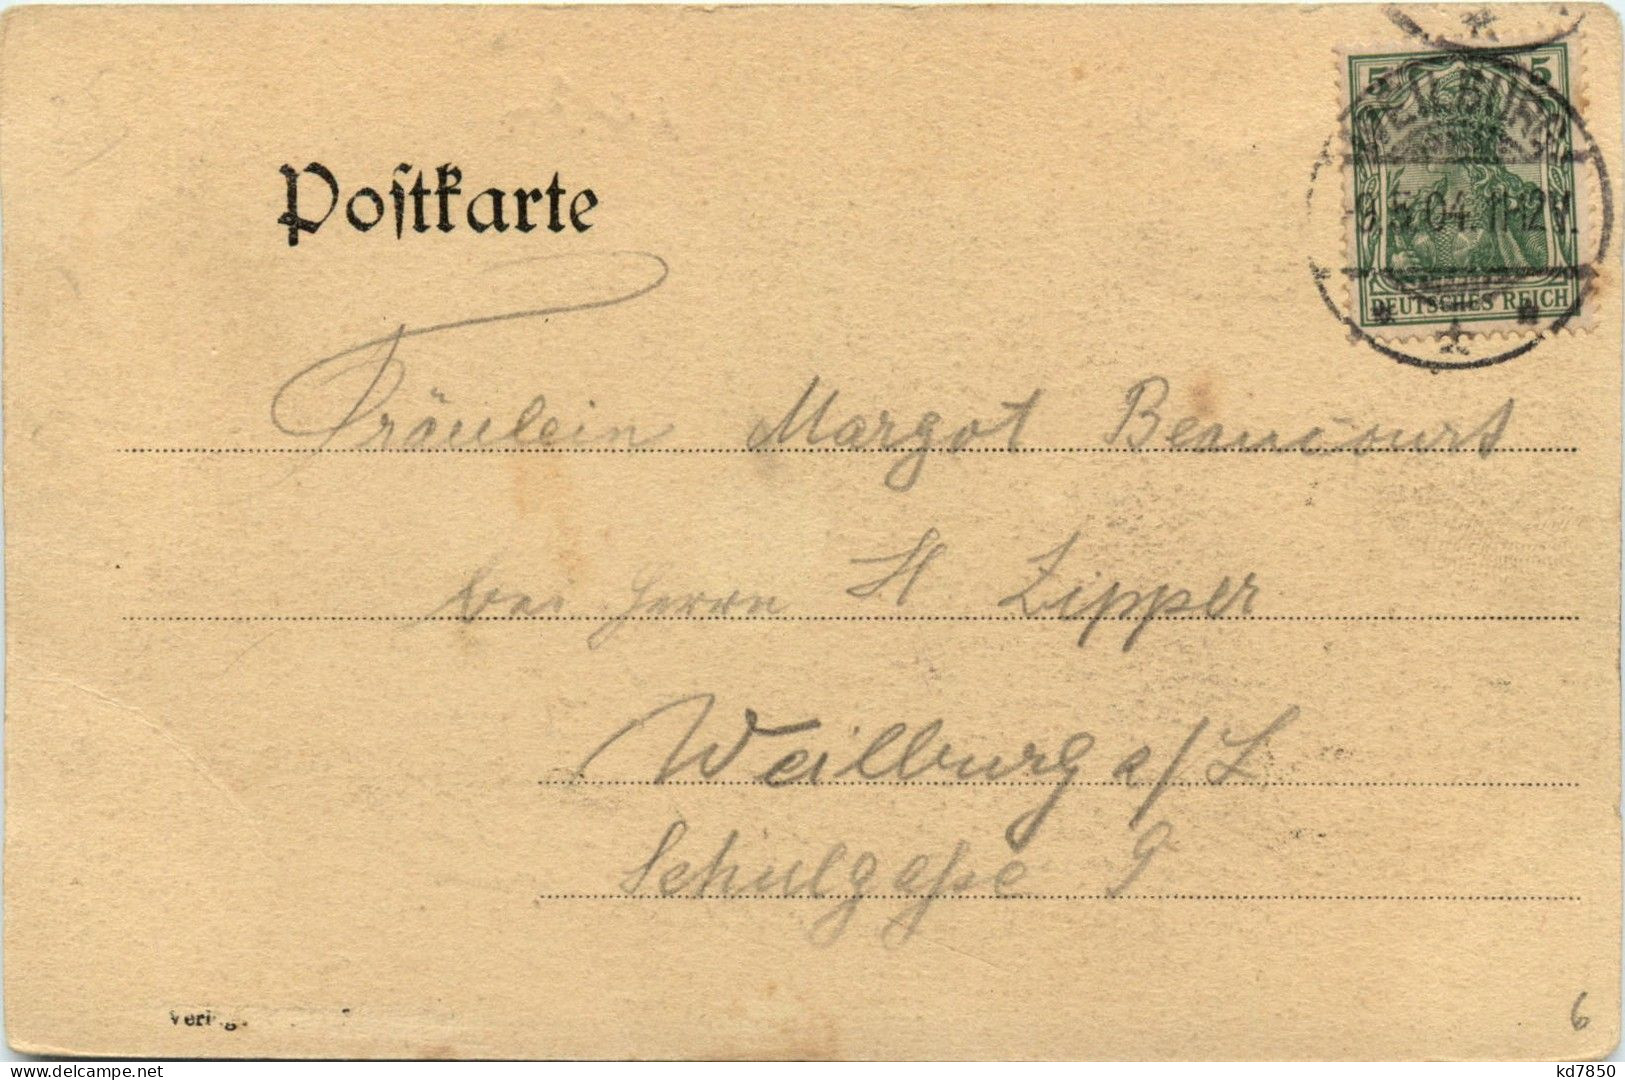 Postkarte
5 5
WEILBURG
5.04. 11-12V.
DEUTSCHES REICH
Fräulein Margot Beaucourt
bei Herrn H Zipper
Weilburg a/L
Schulgasse 9
6
delcampe.net
kd7850